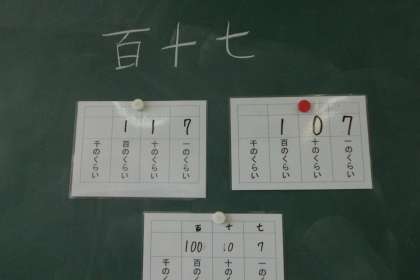 百十七
1 1 7
千のくらい 百のくらい 十のくらい 一のくらい
1 0 7
千のくらい 百のくらい 十のくらい 一のくらい
百 十 七
100 10 7
千のくらい 百のくらい 十のくらい 一のくらい